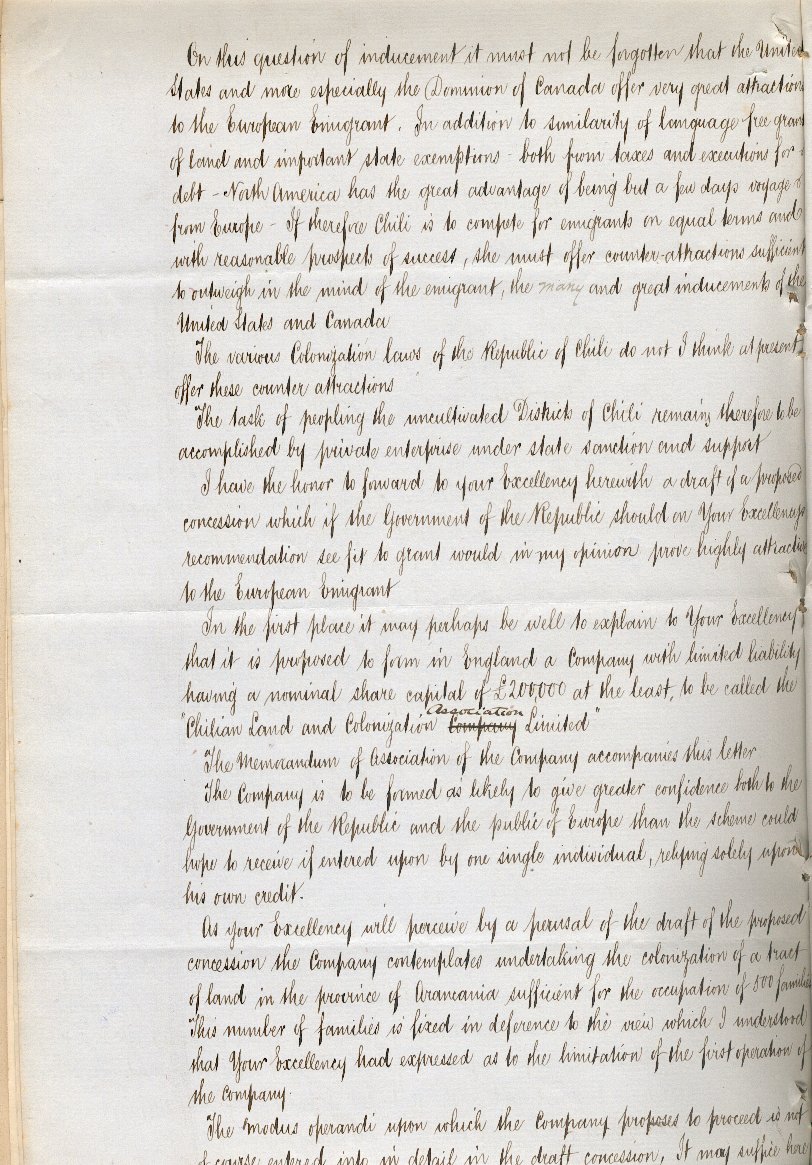 On this question of inducement it must not be forgotten that the United
States and more especially the Dominion of Canada offer very great attractions
to the European Emigrant. In addition to similarity of language free grants
of land and important state exemptions - both from taxes and executions for
debt - North America has the great advantage of being but a few days voyage
from Europe - If therefore Chili is to compete for emigrants on equal terms and
with reasonable prospects of success, she must offer counter-attractions sufficient
to outweigh in the mind of the emigrant, the many and great inducements of the
United States and Canada
The various Colonization laws of the Republic of Chili do not I think at present,
offer these counter attractions
The task of peopling the uncultivated Districts of Chili remains therefore to be
accomplished by private enterprise under state sanction and support
I have the honor to forward to your Excellency herewith a draft of a proposed
concession which if the Government of the Republic should on Your Excellency's
recommendation see fit to grant would in my opinion prove highly attractive
to the European Emigrant
In the first place it may perhaps be well to explain to Your Excellency
that it is proposed to form in England a Company with limited liability
having a nominal share capital of £200,000 at the least, to be called the
Association
"Chilian Land and Colonization Company Limited"
The Memorandum of Association of the Company accompanies this letter
The Company is to be formed as likely to give greater confidence both to the
Government of the Republic and the public of Europe than the scheme could
hope to receive if entered upon by one single individual, relying solely upon
his own credit.
As your Excellency will perceive by a perusal of the draft of the proposed
concession the Company contemplates undertaking the colonization of a tract
of land in the province of Aramania sufficient for the occupation of 500 families
This number of families is fixed in deference to the view which I understood
that Your Excellency had expressed as to the limitation of the first operation of
the company.
The modus operandi upon which the Company proposes to proceed is not
of course entered into in detail in the draft concession, It may suffice here